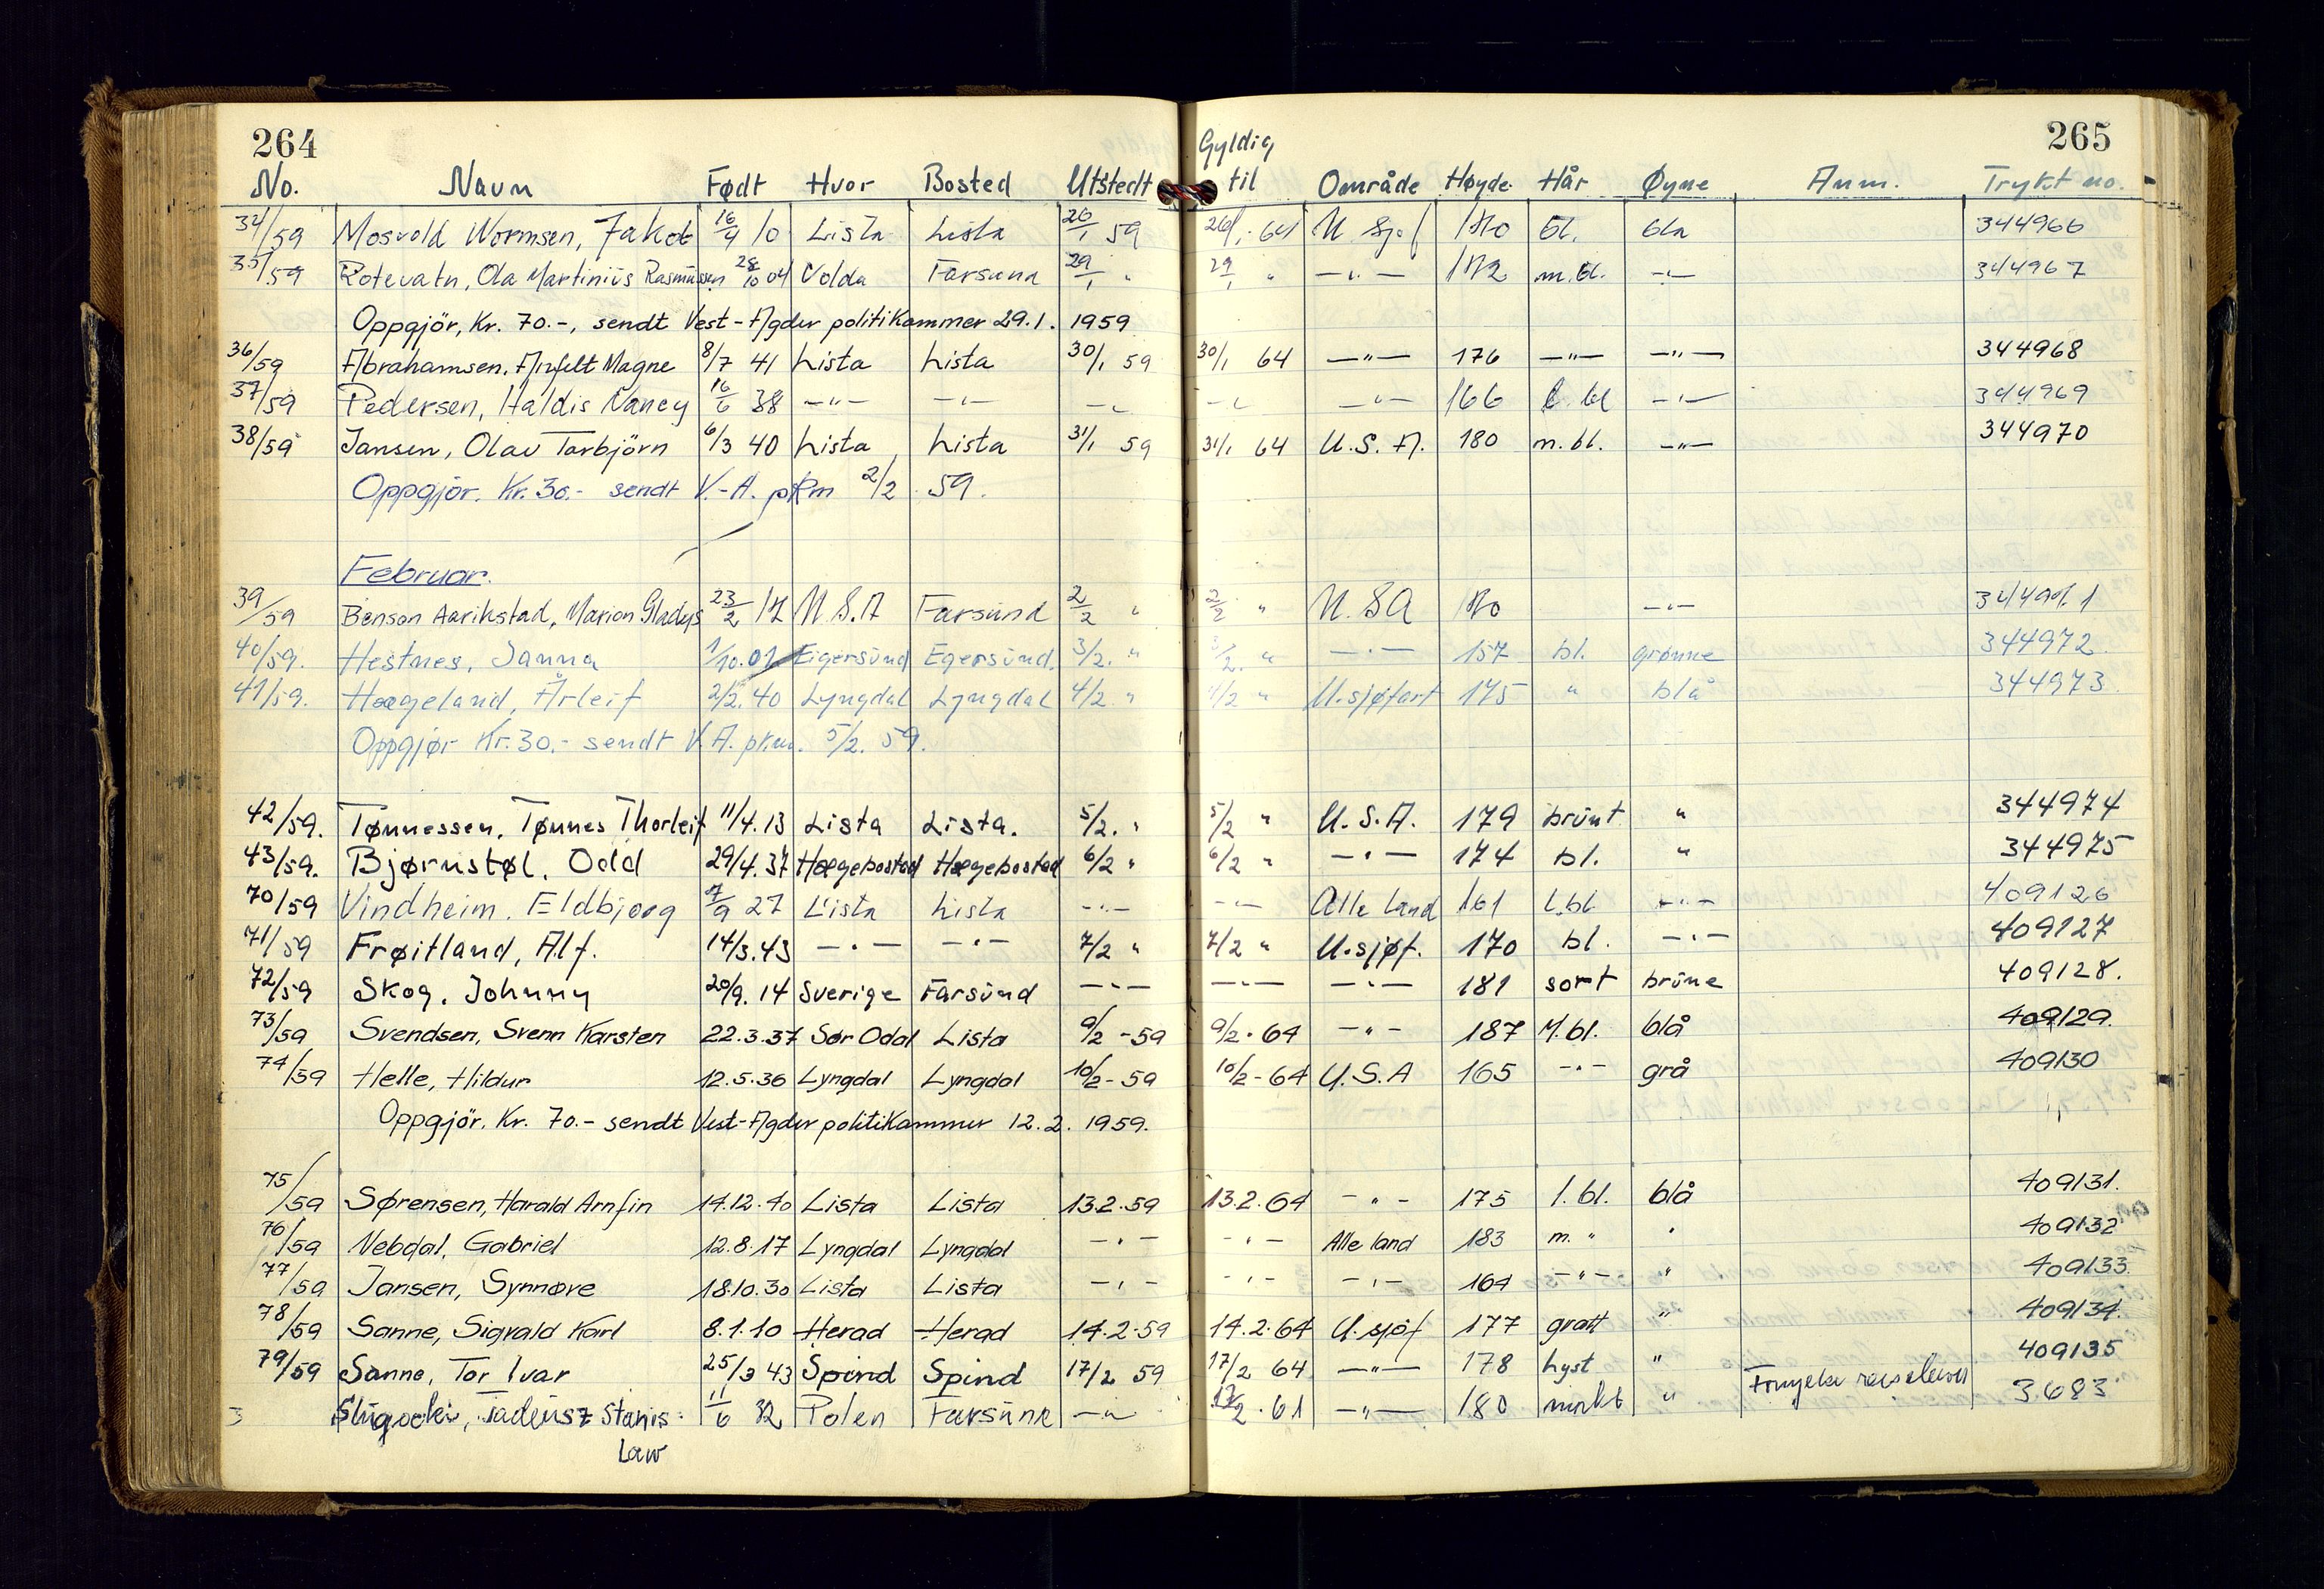 264
265
Gyldig
No. Navn Født Hvor Bosted Utstedt til Område Høyde Hår Øyne Anm. Trykt no.
34/59 Mosvold Wormsen, Jakob 16/9 10 Lista Lista 26/1 59 26/1-64 U Sjøf 170 bl. bla 344966
35/59 Rotevatn, Ola Martinius Rasmussen 28/10 04 Volda Farsund 29/1 " 29/1 " —"— 172 m.bl. —"— 344967
Oppgjör, Kr. 70.-, sendt Vest-Agder politikammer 29.1. 1959
36/59 Abrahamsen, Arnfelt Magne 8/7 41 Lista Lista 30/1 59 30/1 64 —"— 176 —"— —"— 344968
37/59 Pedersen, Haldis Nancy 16/6 38 —"— —"— —"— —"— —"— 166 l. bl —"— 344969
38/59 Jansen, Olav Torbjörn 6/3 40 Lista Lista 31/1 59 31/1 64 U.S.A. 180 m.bl. —"— 344970
Oppgjör. Kr. 30.- sendt V.-A. pkm 2/2 59.
Februar.
39/59 Benson Aarikstad, Marion Gladys 23/2 17 U.S.A Farsund 2/2 " 2/2 " U.S.A 170 —"— 344971
40/59. Hestnes, Janna 1/10.01 Eigersund Egersund. 3/2. " 3/2. " —"— 157 bl. grønne 344972.
41/59. Hægeland, Årleif 2/2.40 Lyngdal Lyngdal 4/2. " 4/2 " U.sjøfart 175 " blå 344973
Oppgjør Kr. 30.- sendt V.A. pkm. 5/2. 59.
42/59. Tønnessen, Tønnes Thorleif 11/4.13 Lista Lista. 5/2. " 5/2 " U.S.A. 179 brunt " 344974
43/59. Bjørnstøl, Odd 29/4.37 Hægebostad Hægebostad 6/2 " 6/2 " —"— 174 bl. " 344975
70/59 Vindheim, Eldbjørg 7/9 27 Lista Lista —"— —"— Alle land 161 l.bl —"— 409126
71/59 Frøitland, Alf. 14/3.43 —"— —"— 7/2 " 7/2 " U.sjøf. 170 bl. —"— 409127
72/59 Skog, Johnny 20/9. 14 Sverige Farsund —"— —"— —"— 181 sort brune 409128.
73/59 Svendsen, Svenn Karsten 22.3.37 Sør Odal Lista 9/2 -59 9/2 - 64 —"— 187 M.bl. blå 409129.
74/59 Helle, Hildur 12.5.36 Lyngdal Lyngdal 10/2-59 10/2-64 U.S.A 165 —"— grå 409130
Oppgjör. Kr. 70.- sendt Vest-Agder politikammer 12.2. 1959.
75/59 Sørensen, Harald Arnfin 14.12.40 Lista Lista 13.2.59 13.2.64 —"— 175 l.bl. blå 409131.
76/59 Nebdal, Gabriel 12.8.17 Lyngdal Lyngdal —"— —"— Alle land 183 m. " " 409132
77/59 Jansen, Synnøve 18.10.30 Lista Lista —"— —"— —"— 164 —"— " 409133.
78/59 Sanne, Sigvald Karl 8.1.10 Herad Herad 14.2.59 14.2.64 U.sjöf 177 grått " 409134.
79/59 Sanne, Tor Ivar 25/3 43 Spind Spind 17/2 59 17/2 64 —"— 178 Lyst " 409135
3 Tadeusz Stanis- 11/6 32 Polen Farsund —"— 17/2 - 61 —"— 180 mørkt " Fornyelse 3683
law